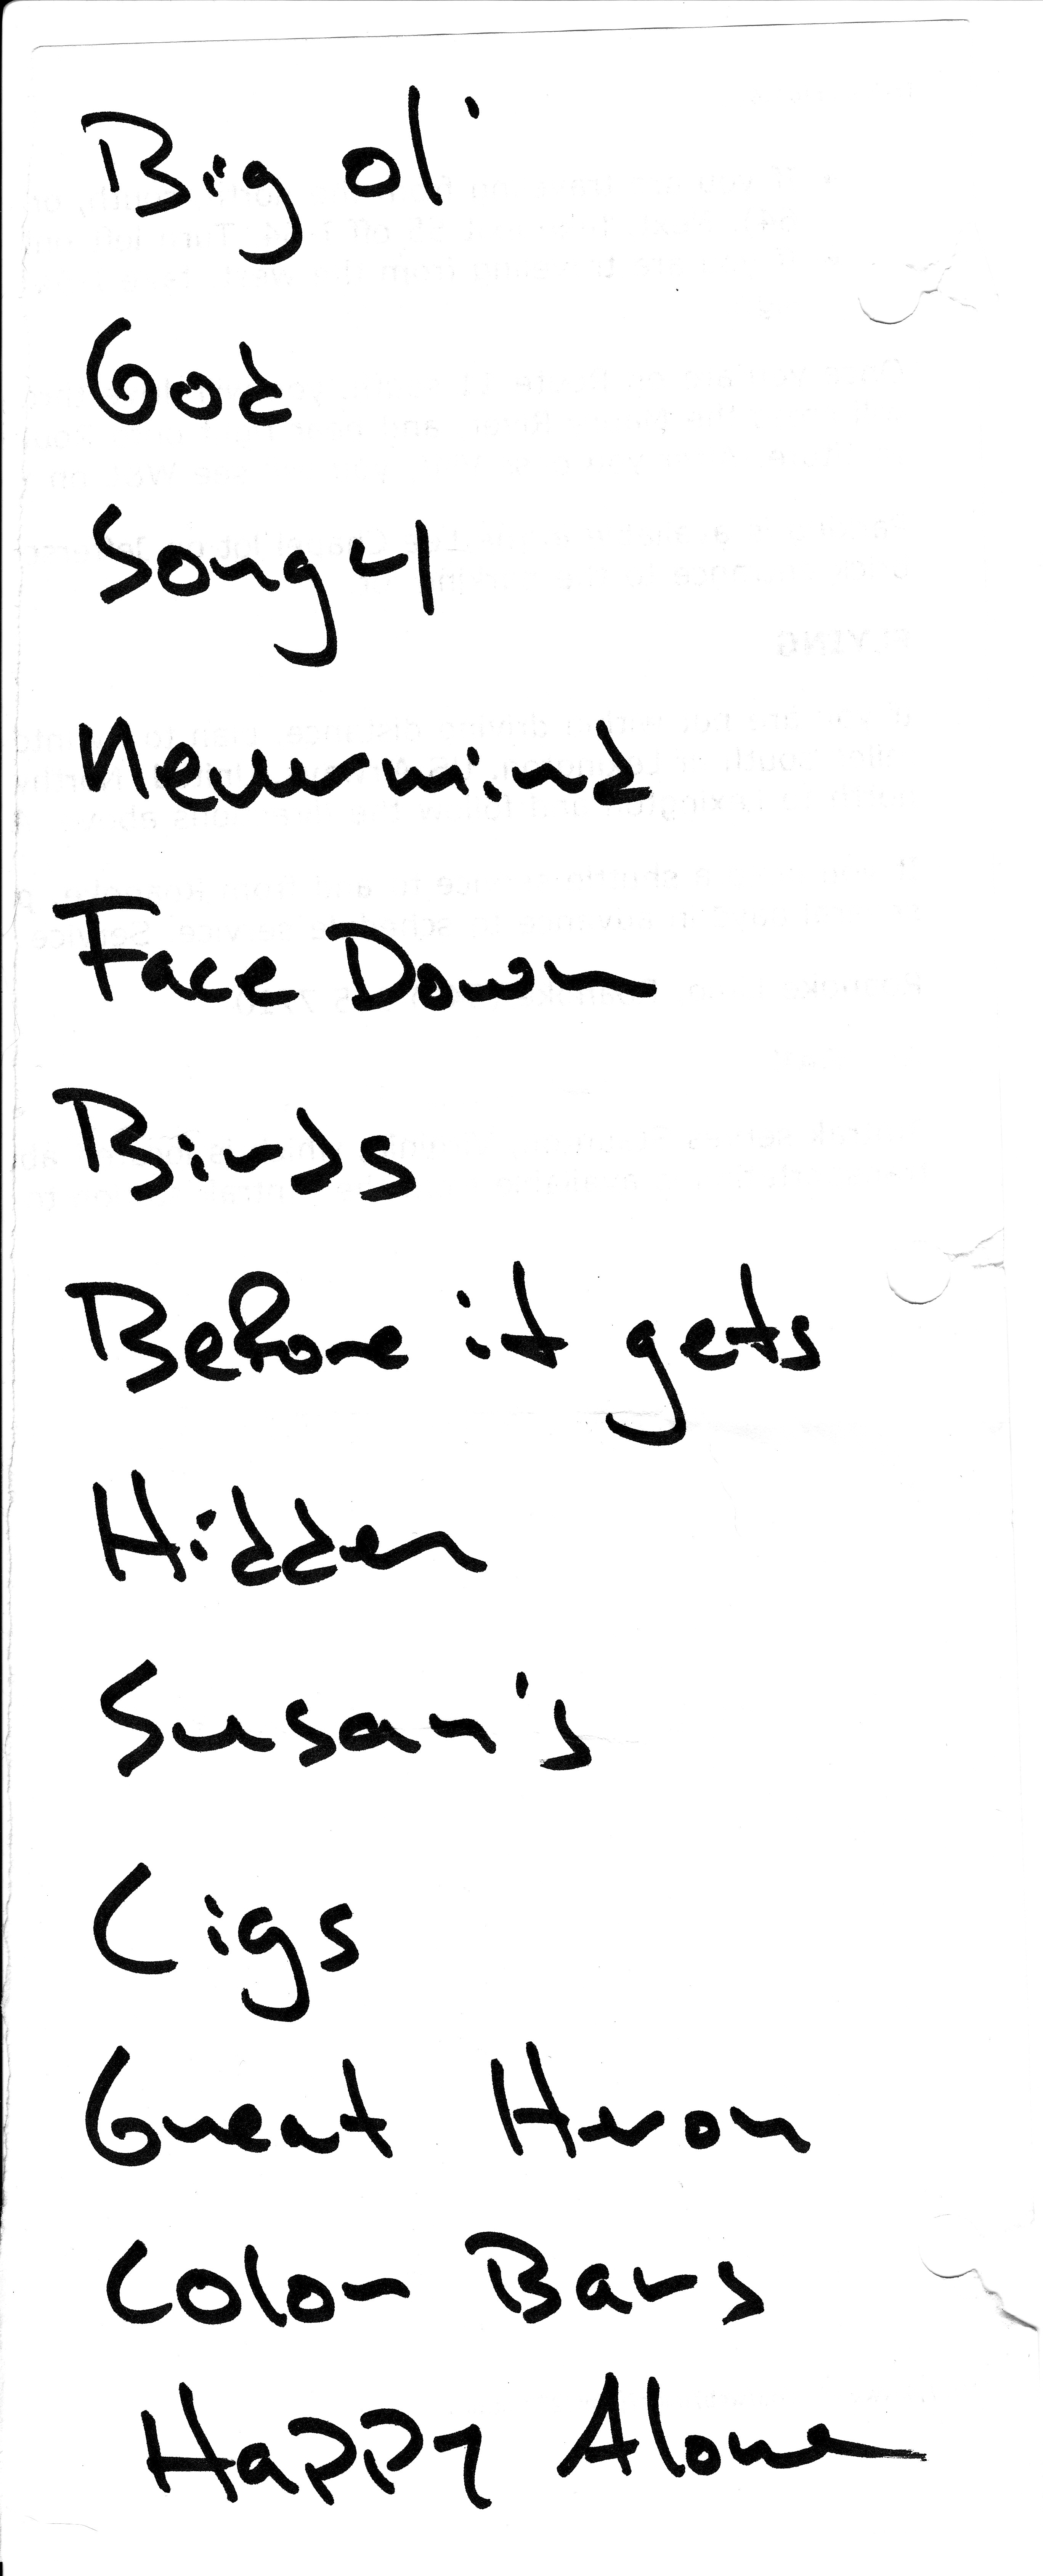 Big ol'
God
Song 4
Nevermind
Face Down
Birds
Before it gets
Hidden
Susan's
Cigs
Great Heron
Color Bars
Happy Alone